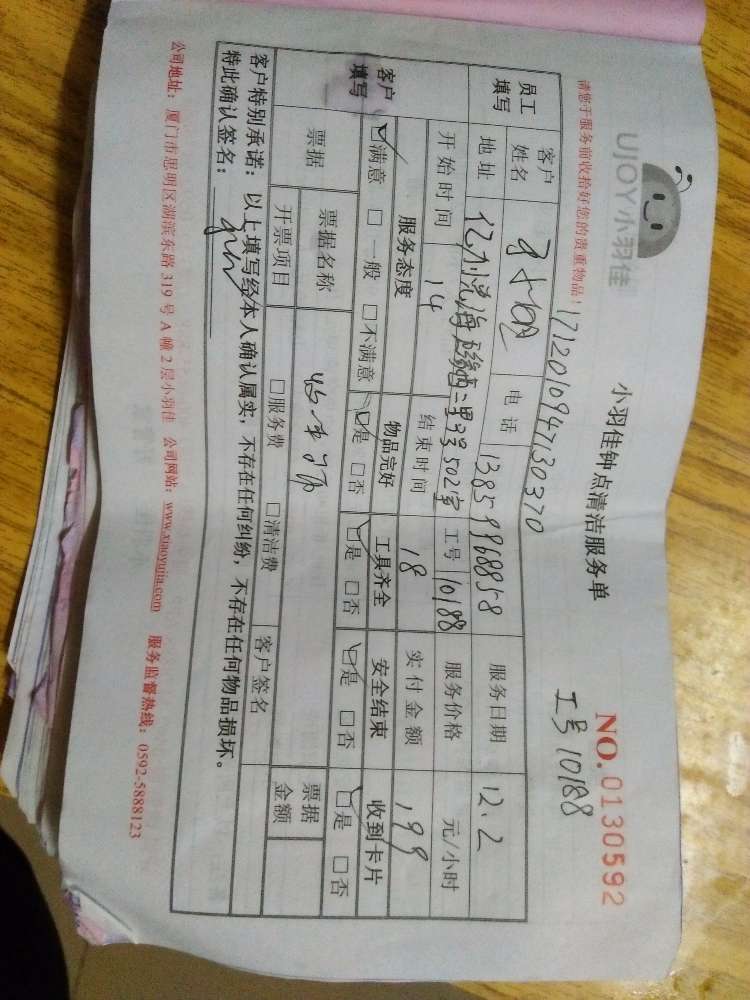 UJOY小羽佳
小羽佳钟点清洁服务单
NO.0130592
工号10188
请您于服务前收拾好您的贵重物品!
171201094730370
员工填写 客户姓名 电话 13859968858 服务日期 12.2
地址 亿力悦海 二里33号502室 工号 10188 服务价格 元/小时
开始时间 14 结束时间 18 实付金额 199
客户填写 服务态度 物品完好 工具齐全 安全结束 收到卡片
☑满意 □一般 □不满意 ☑是 □否 ☑是 □否 ☑是 □否 ☑是 □否
票据 票据名称 票据金额
开票项目 □服务费 □清洁费 客户签名
客户特别承诺：以上填写经本人确认属实，不存在任何纠纷，不存在任何物品损坏。
特此确认签名：
公司地址：厦门市思明区湖滨东路319号A幢2层小羽佳 公司网站：www.xiaoyujia.com 服务监督热线：0592-5888123